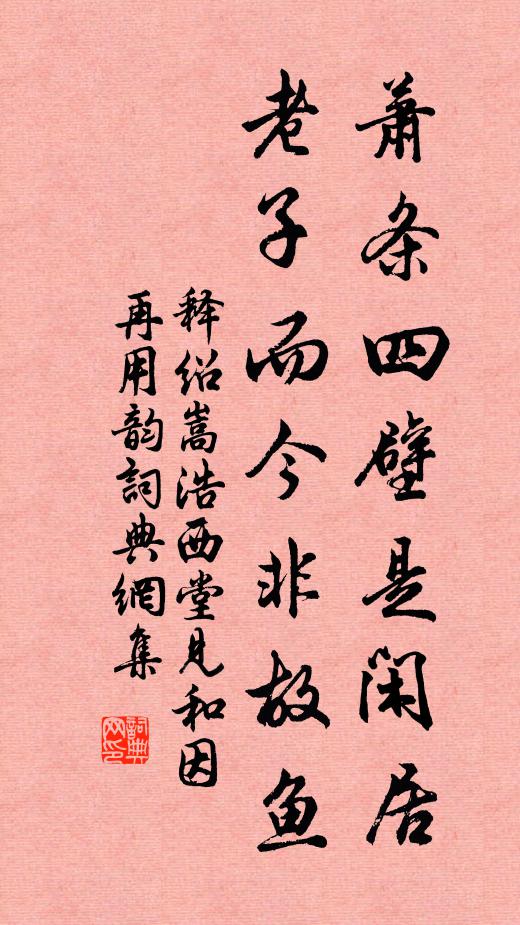 萧条四壁是闲居
老子而今非故鱼
释绍嵩浩西堂见和因
再用韵词典網集
詞典
网印